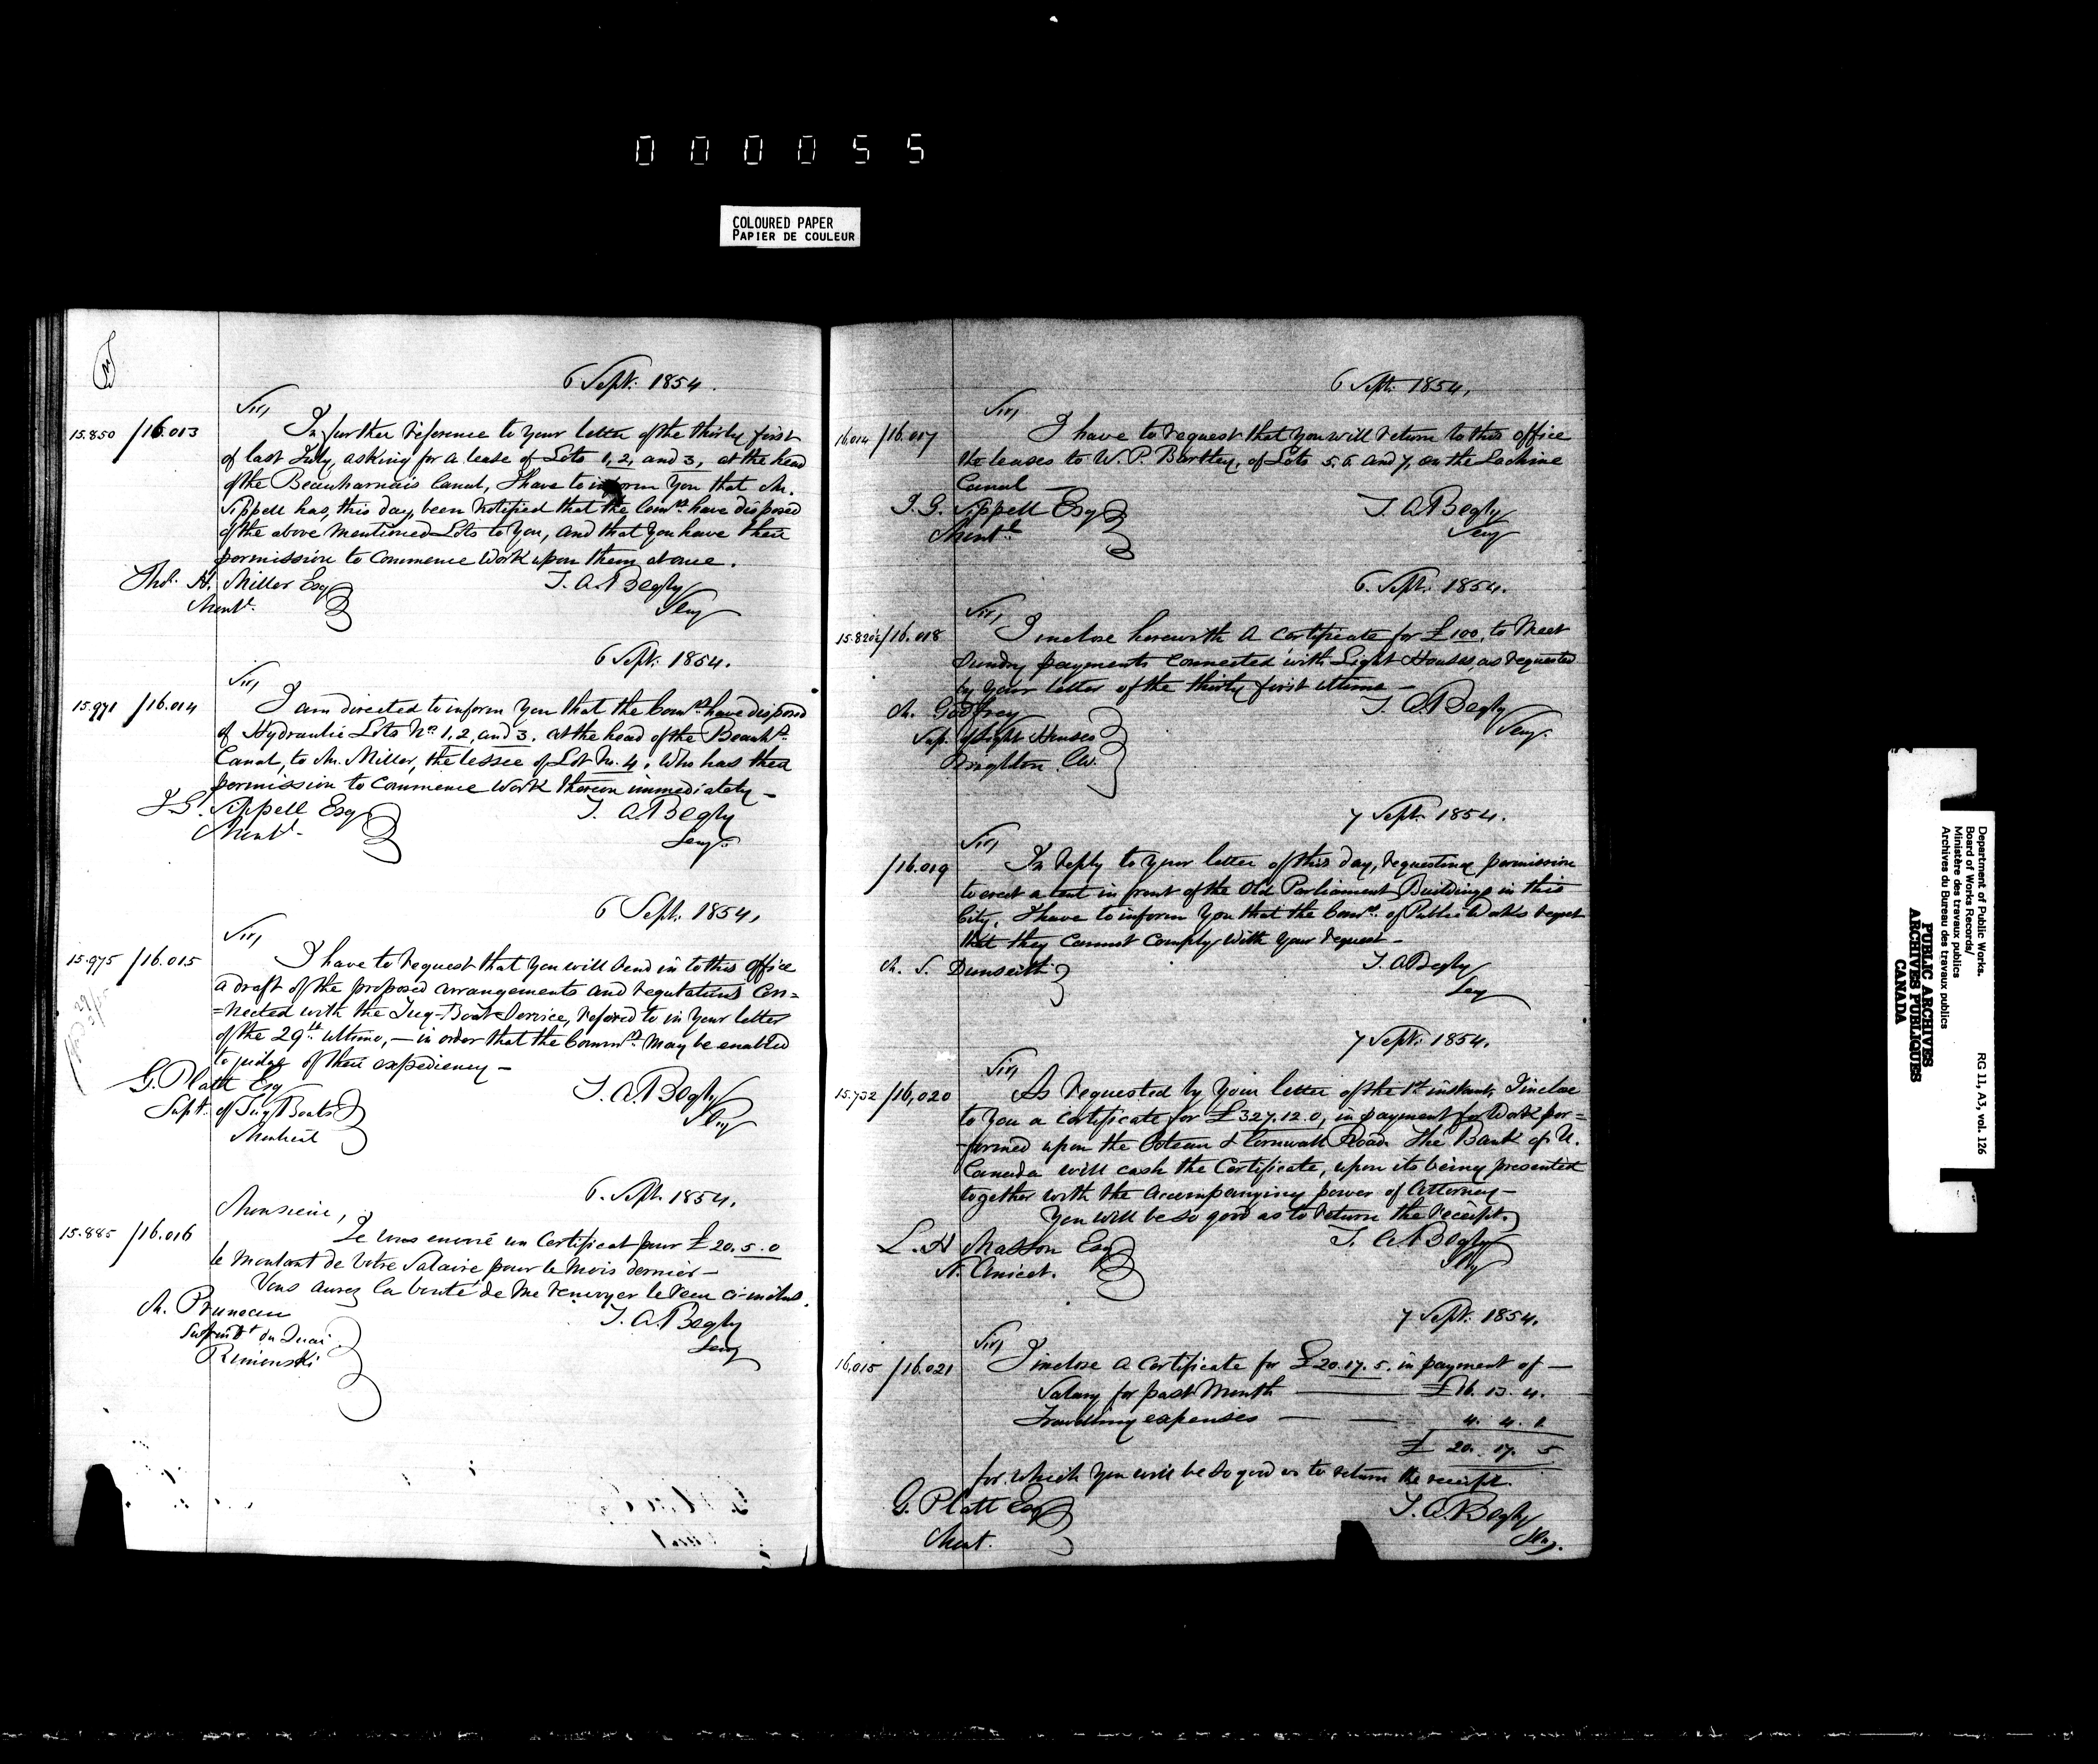 000055
COLOURED PAPER
PAPIER DE COULEUR
6 Sept. 1854.
Sir,
15.850 /16.013 In further reference to your letter of the thirty first
of last July, asking for a lease of Lots 1, 2, and 3, at the head
of the Beauharnais Canal, I have to inform you that Mr.
Sippell has, this day, been notified that the Comrs. have disposed
of the above mentioned Lots to you, and that you have their
permission to commence work upon them at once.
Thos. H. Miller Esq T. A. Begly
Montl. Secy
6 Sept. 1854.
Sir,
15.971 /16.014 I am directed to inform you that the Comrs. have disposed
of Hydraulic Lots No. 1, 2, and 3. at the head of the Beauhs.
Canal, to Mr. Miller, the lessee of Lot No. 4. Who has their
permission to commence work thereon immediately –
J. G. Sippell Esq T. A. Begly
Montl. Secy
6 Sept. 1854,
Sir,
15.975 /16.015 I have to request that you will send in to this office
a draft of the proposed arrangements and regulations con=
=nected with the Tug-Boat Service, refered to in your letter
of the 29th. ultimo, – in order that the Commrs. may be enabled
to judge of their expediency –
G. Platt Esq T. A. Begly
Supt. of Tug Boats Secy
Montreal
6. Sept. 1854.
Monsieur,
15.885 /16.016 Je vous envoie un Certificat pour £20.5.0
le montant de votre Salaire pour le mois dernier –
Vous aurez la bonté de me renvoyer le recu ci-inclus.
M. Pruneau T. A. Begly
Surintdt. du Quai Secy
Rimouski
6 Sept. 1854,
Sir,
16.014 /16.017 I have to request that you will return to this office
the leases to W. P. Bartley, of Lots 5. 6. and 7, on the Lachine
Canal –
J. G. Sippell Esq T. A. Begly
Montl. Secy
6. Sept. 1854.
Sir,
15.820½ /16.018 I inclose herewith a certificate for £100, to meet
sundry payments connected with Light Houses, as requested
by your letter of the thirty first ultimo –
M. Godfrey T. A. Begly
Sup. of Light Houses Secy.
Brighton C.W.
7 Sept. 1854.
Sir,
/16.019 In reply to your letter of this day, requesting permission
to erect a tent in front of the Old Parliament Buildings in this
City, I have to inform you that the Comrs. of Public Works regret
that they cannot comply with your request –
M. S. Dunseith T. A. Begly
Secy
7 Sept. 1854.
Sir,
15.732 /16,020 As requested by your letter of the 1st instant, I inclose
to you a certificate for £327.12.0, in payment for Work per=
=formed upon the Coteau & Cornwall Road. The Bank of U.
Canada will cash the Certificate, upon its being presented
together with the accompanying power of Attorney –
You will be so good as to return the receipt.
L. H. Masson Esq T. A. Begly
St. Anicet. Secy
7 Sept. 1854.
Sir,
16,015 /16.021 I inclose a certificate for £20.17.5. in payment of –
Salary for past Month £16. 13. 4.
Travelling expenses 4. 4. 1.
£ 20. 17. 5
for which you will be so good as to return the receipt.
G. Platt Esq T. A. Begly
Mont. Secy.
Department of Public Works.
Board of Works Records/
Ministère des travaux publics
Archives du Bureau des travaux publics
RG 11, A3, vol. 126
PUBLIC ARCHIVES
ARCHIVES PUBLIQUES
CANADA